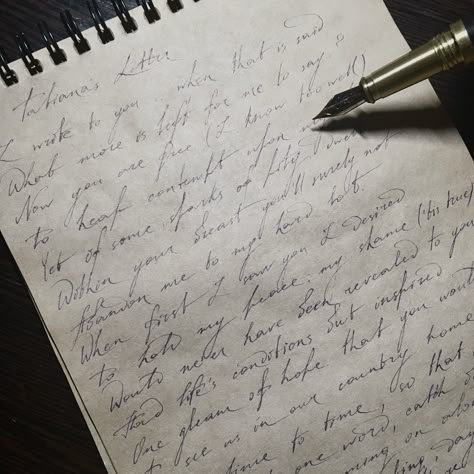 Tatiana's Letter
I write to you .. when that is said
What more is left for me to say?
Now you are free (I know too well)
to heap contempt upon
Yet if some sparks of pity dwell
Within your breast you'll surely not
Abandon me to my hard lot.
When first I saw you I desired
to hold my peace: my shame (it's true)
Would never have been revealed to you
Had life's conditions but inspired
One gleam of hope that you would
to see us in our country home
time to time, so that
one word, catch
on
day